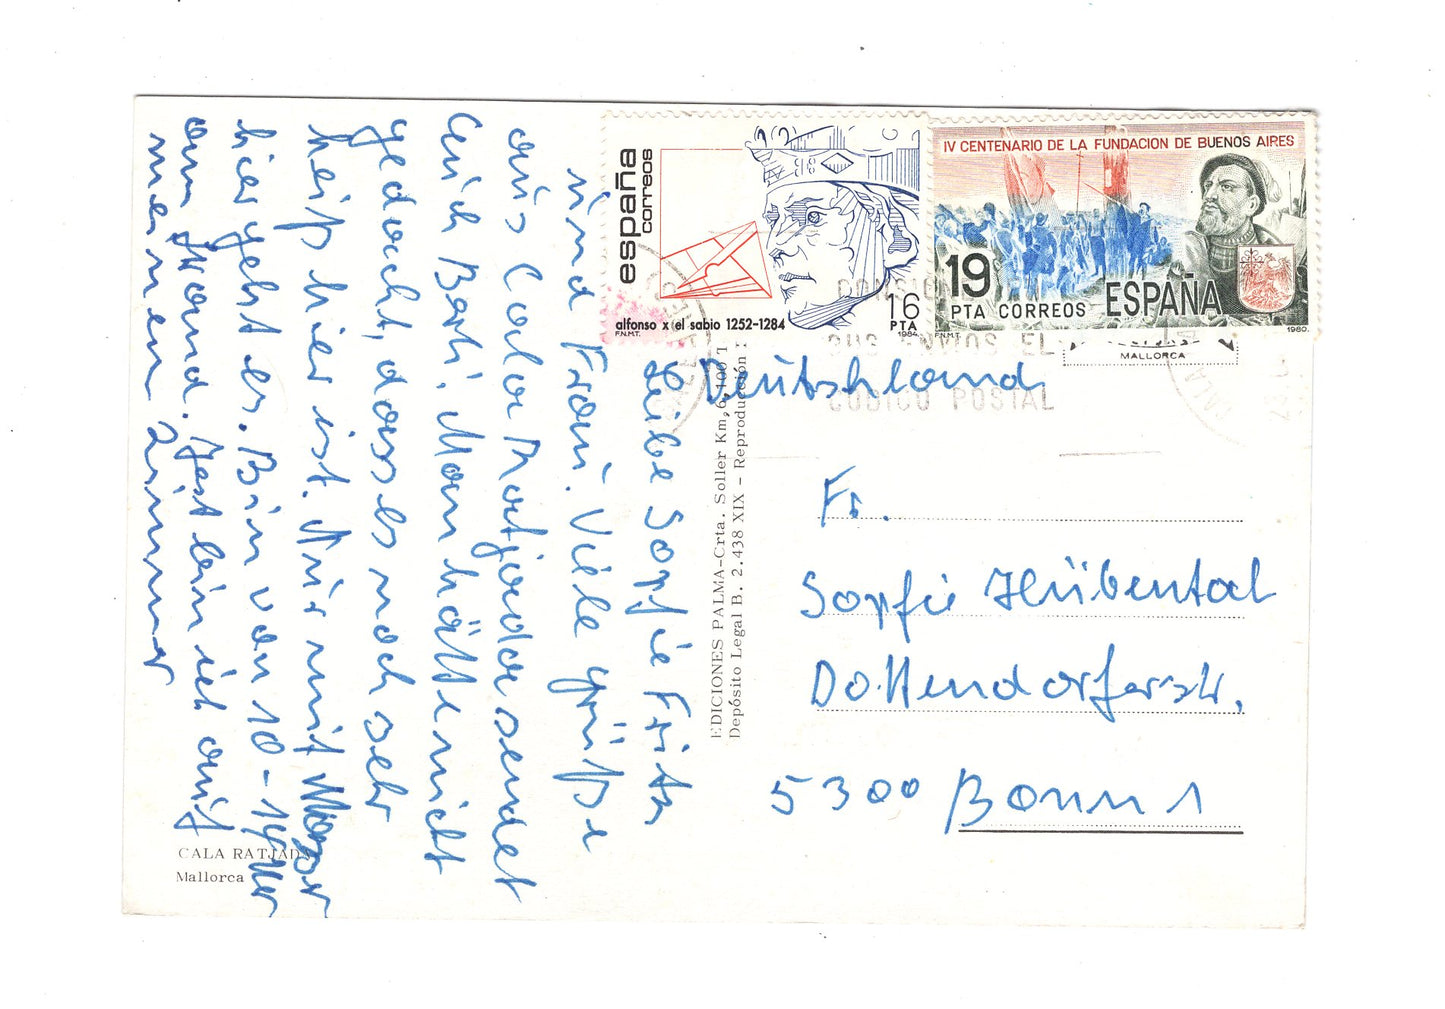 españa
correos
alfonso x el sabio 1252-1284
F.N.M.T.
16
PTA
1984
IV CENTENARIO DE LA FUNDACION DE BUENOS AIRES
19
PTA CORREOS ESPAÑA
F.N.M.T.
1980
CONSIGN
SUS ENVIOS EL
CODIGO POSTAL
CALA
MALLORCA
Liebe Sopfie Fritz
und Frau. Viele grüße
aus Cala Ratjada sendet
Euch Berti. Man hätte nicht
gedacht, dass es noch sehr
heiß hier ist. Nur mit Wasser
hier geht es. Bin von 10-14 Uhr
am Strand. Jest bin ich auf
meinem Zimmer
CALA RATJADA
Mallorca
EDICIONES PALMA-Crta. Soller Km, 6,100
Depósito Legal B. 2.438 XIX - Reproducción
Deutschland
Fr.
Sopfie Hübental
Dottendorferstr.
5300 Bonn 1